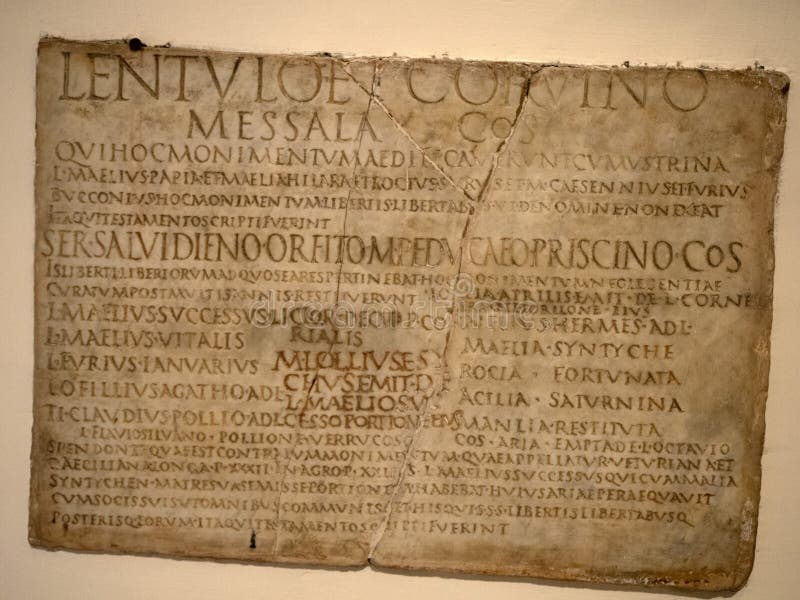 LENTVLO E CORVINO
MESSALA COS
QVI HOC MONIMENTVM AEDIFICAVERVNT CVM VSTRINA
L·MAELIVS·PAPIA·ET·MAELIA·HILARA·ET·ROCIVS· ET·M·CAESENNIVS·ET·FVRIVS
BVCCONIVS·HOC MONIMENTVM·LIBERTIS·LIBERTABVS DE NOMINE NON EXEAT
ITA QVI TESTAMENTO SCRIPTI FVERINT
SER·SALVIDIENO·ORFITO·M·PEDVCAEO PRISCINO·COS
IS LIBERTI LIBERIORVM AD QVOS EA RES PERTINEBAT HOC MONIMENTVM NEGLEGENTIAE
CVRATVM POST MVLTIS ANNIS RESTIVERVNT
L·MAELIVS SVCCESSVS LICTOR HERMES·AD L·
L·MAELIVS VITALIS RIALIS MAELIA·SYNTYCHE
L·FVRIVS·IANVARIVS M·LOLLIVS ROCIA·FORTVNATA
L·OFILLIVS AGATHO·AD L EMIT·DE ACILIA·SATVRNINA
TI·CLAVDIVS POLLIO·AD L MANLIA·RESTITVTA
L·FLAVIO SILVANO·POLLIONE VERRVCOS COS·ARIA·EMPTA DE·L·OCTAVIO
SPENDONTE QVAEST CONTRA MONIMENTVM·QVAE APPELLATVR VETVRIAN ET
CAECILIAN LONGA·P·XXXII IN AGRO·P·XXI L·MAELIVS SVCCESSVS QVI CVM MALIA
SYNTYCHEN·MATRE SVA SEMISSE PORTIONE HABEBAT HVIVS ARIAE PERAEQVAVIT
CVM SOCIS SVIS VT OMNIBVS COMMVNIS LIBERTIS LIBERTABVSQ
POSTERISQ EORVM·ITA QVI TESTAMENTO SCRIPTI FVERINT